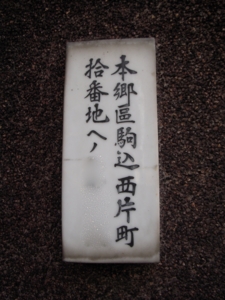 本郷區駒込西片町
拾番地ヘノ